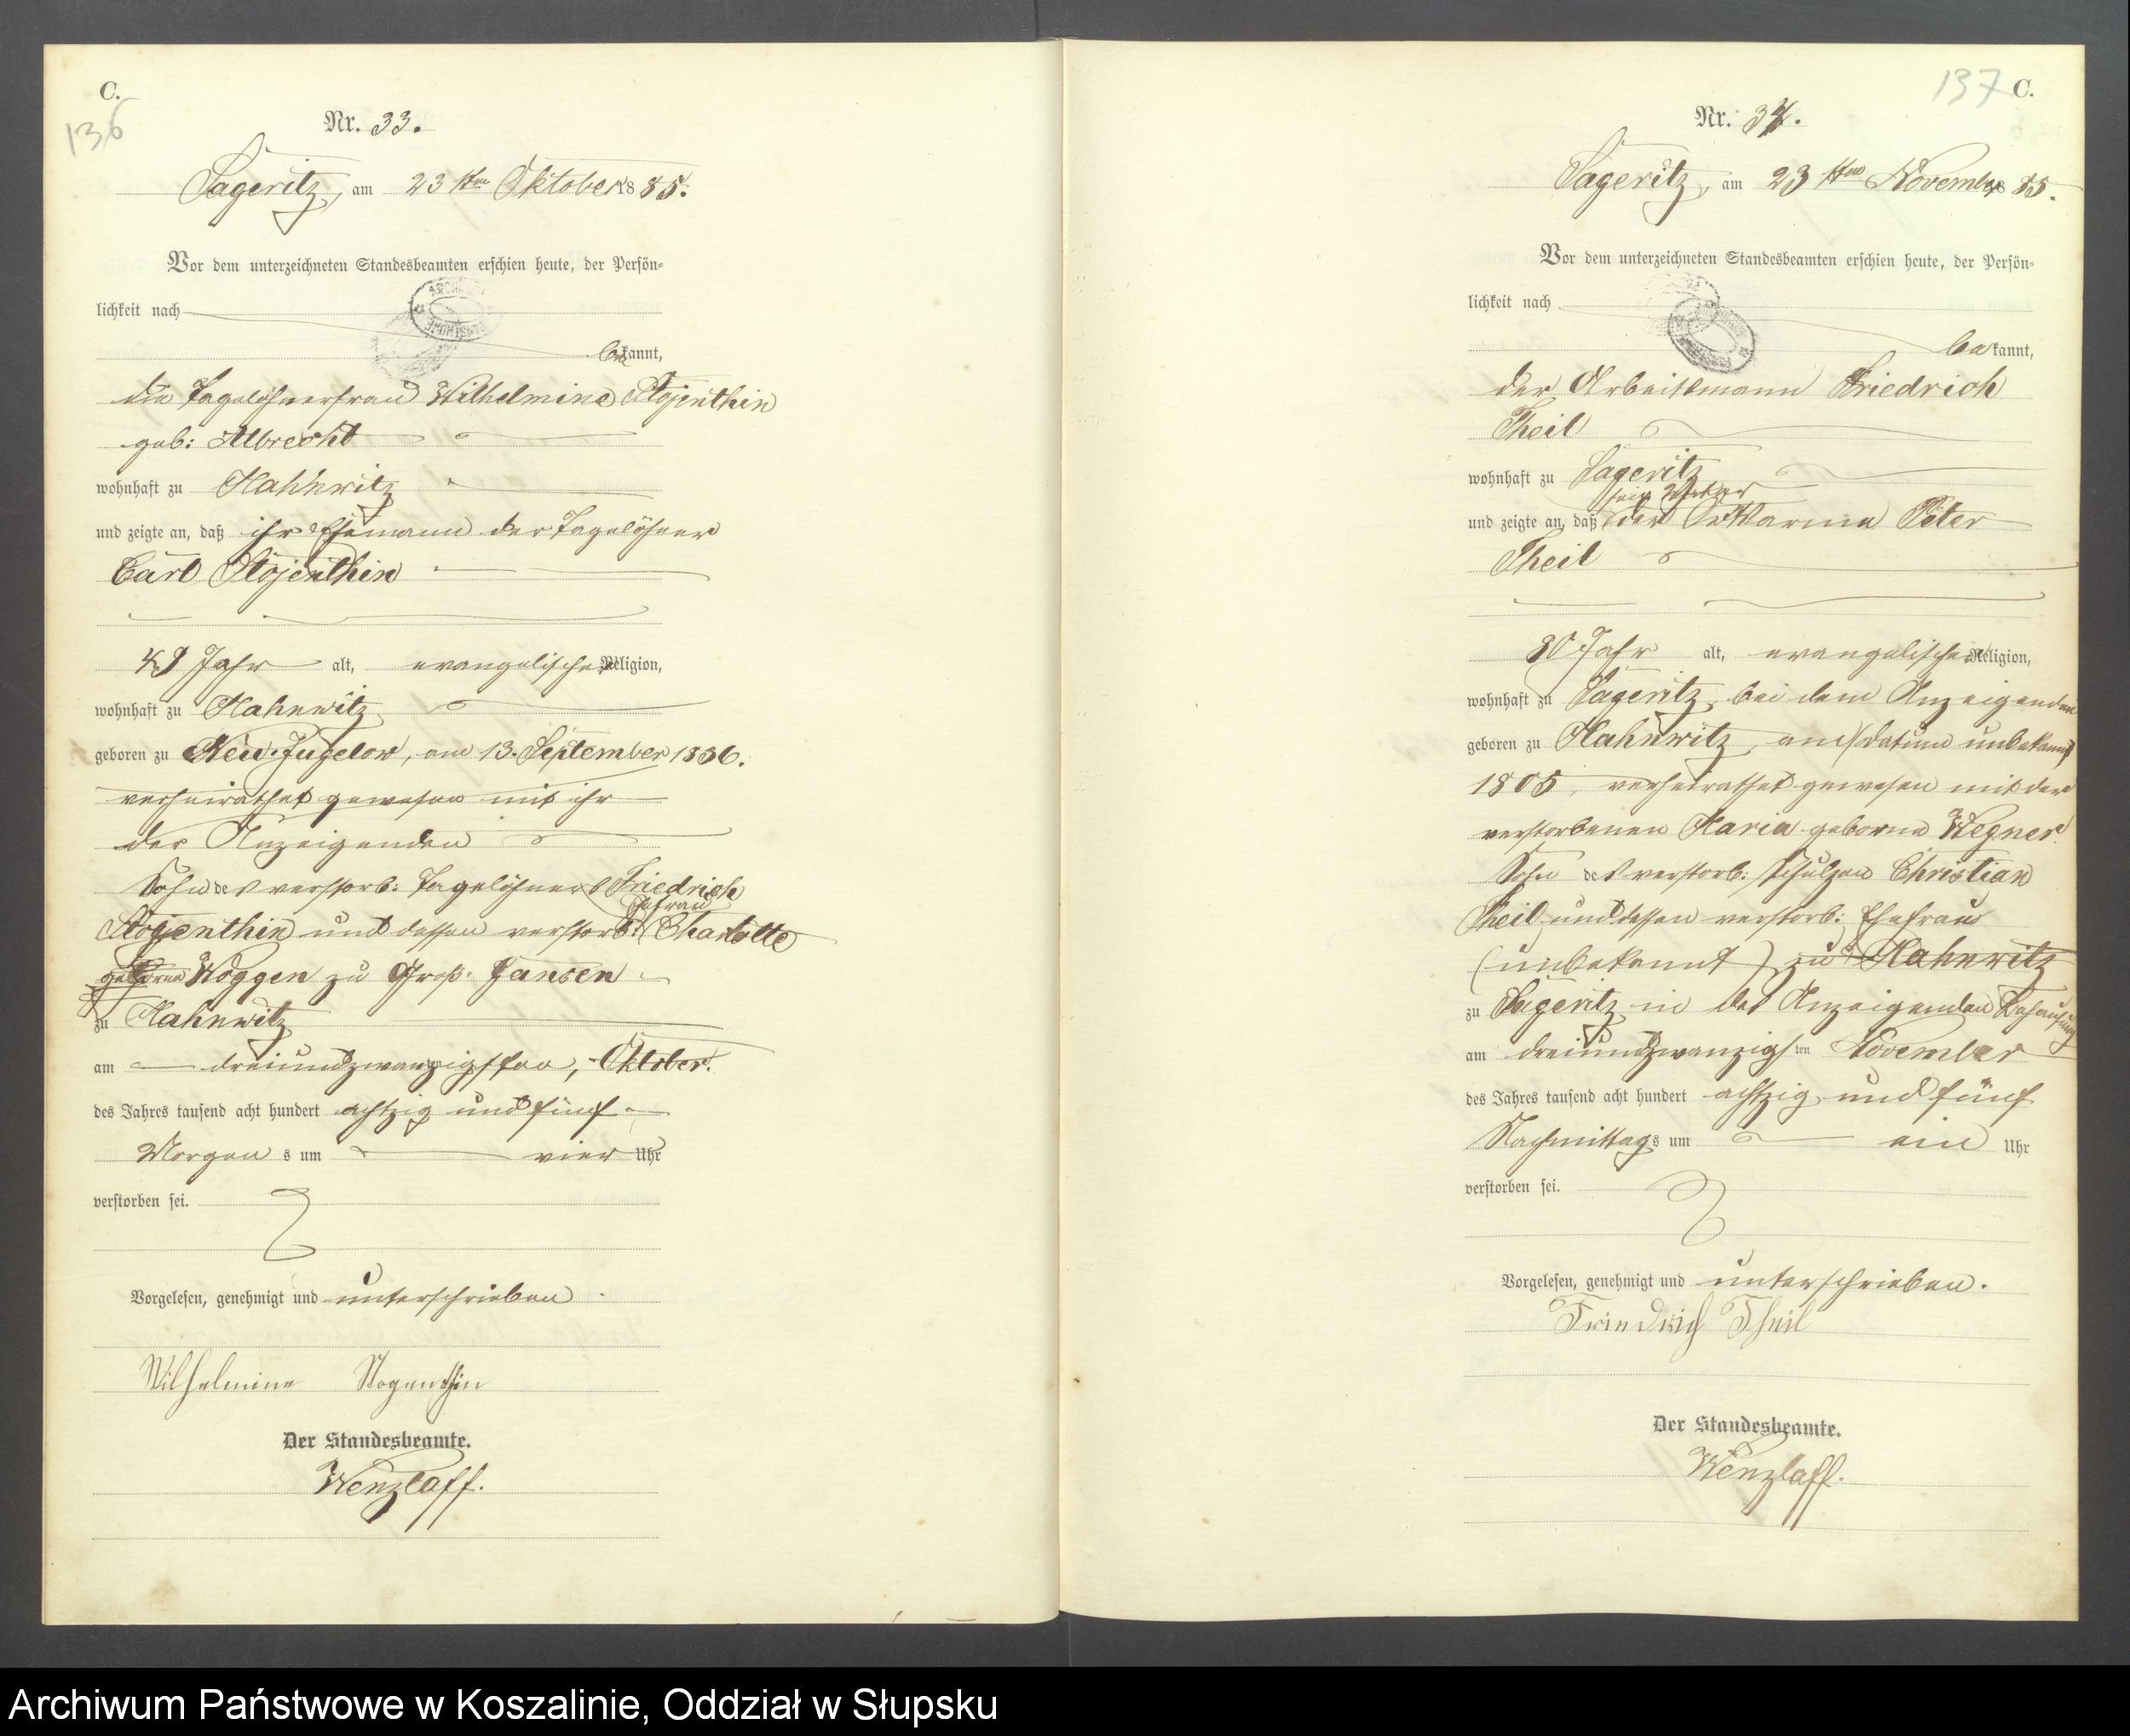 C.
136
Nr. 33.
Sageritz, am 23 ten Oktober 18 85.
Vor dem unterzeichneten Standesbeamten erschien heute, der Persön-
lichkeit nach
bekannt,
die Tagelöhnerfrau Wilhelmine Stojenthin
geb: Albrecht
wohnhaft zu Hahnwitz
und zeigte an, daß ihr Ehemann der Tagelöhner
Carl Stojenthin
49 Jahr alt, evangelischer Religion,
wohnhaft zu Hahnwitz
geboren zu Neu-Jugelow, am 13. September 1836.
verheirathet gewesen mit ihr
der Anzeigenden
Sohn des verstorb: Tagelöhners Friedrich
Stojenthin und dessen verstorb: Ehefrau Charlotte
geborne Woggen zu Groß-Jansen
zu Hahnwitz
am dreiundzwanzigsten, Oktober.
des Jahres tausend acht hundert achtzig und fünf
Morgens um vier Uhr
verstorben sei.
Vorgelesen, genehmigt und unterschrieben
Wilhelmine Stogenthin
Der Standesbeamte.
Wenzlaff.
137 C.
Nr. 34.
Sageritz, am 23 ten November 18 85.
Vor dem unterzeichneten Standesbeamten erschien heute, der Persön-
lichkeit nach
bekannt,
der Arbeitsmann Friedrich
Theil
wohnhaft zu Sageritz
sein Vater
und zeigte an, daß der Ortsarme Peter
Theil
80 Jahr alt, evangelischer Religion,
wohnhaft zu Sageritz, bei dem Anzeigenden
geboren zu Hahnwitz, am (datum unbekannt)
1805, verheirathet gewesen mit der
verstorbenen Maria geborne Wegner.
Sohn des verstorb: Schulzen Christian
Theil und dessen verstorb: Ehefrau
(unbekannt) zu Hahnwitz
zu Sageritz in des Anzeigenden Behausung
am dreiundzwanzigsten November
des Jahres tausend acht hundert achtzig und fünf
Nachmittags um ein Uhr
verstorben sei.
Vorgelesen, genehmigt und unterschrieben.
Friedrich Theil
Der Standesbeamte.
Wenzlaff.
Archiwum Państwowe w Koszalinie, Oddział w Słupsku